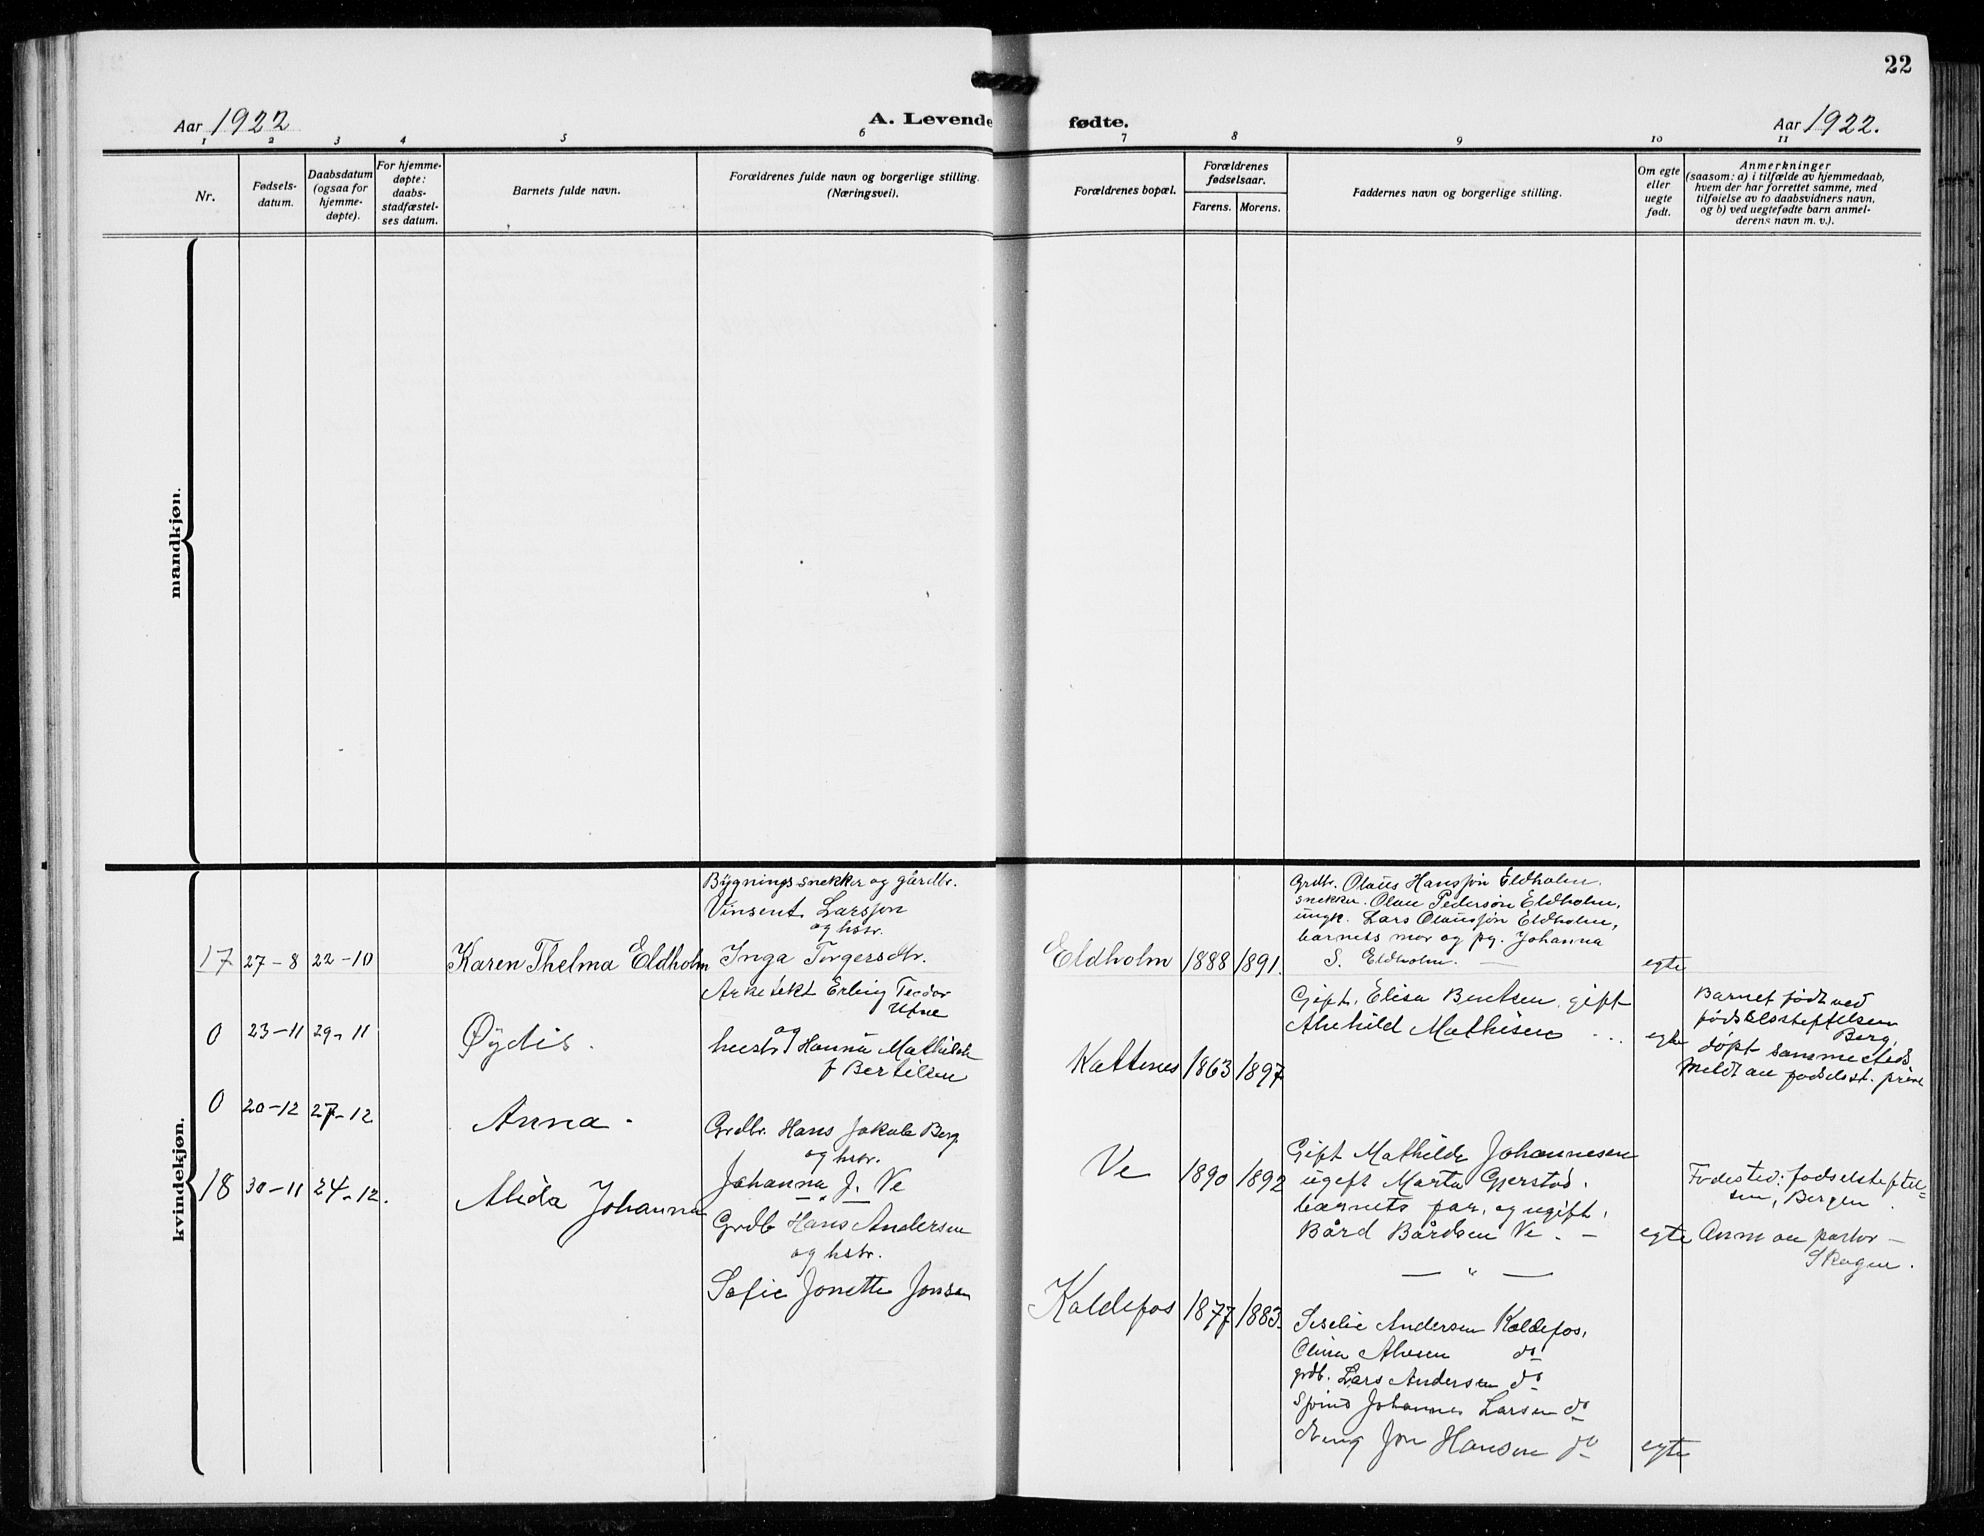 22
Aar 1922
A. Levende fødte.
Aar 1922.
1 2 3 4 5 6 7 8 9 10 11
Nr.
Fødsels-
datum.
Daabsdatum
(ogsaa for
hjemme-
døpte).
For hjemme-
døpte:
daabs-
stadfæstel-
ses datum.
Barnets fulde navn.
Forældrenes fulde navn og borgerlige stilling.
(Næringsvei).
Forældrenes bopæl.
Forældrenes
fødselsaar.
Farens. Morens.
Faddernes navn og borgerlige stilling.
Om egte
eller
uegte
født.
Anmerkninger
(saasom: a) i tilfælde av hjemmedaab,
hvem der har forrettet samme, med
tilføielse av to daabsvidners navn,
og b) ved uegtefødte barn anmel-
derens navn m. v.).
mandkjøn.
kvindekjøn.
17 27-8 22-10
Karen Thelma Eldholm
Bygningssnekker og gårdbr.
Vinsent Larsson
og hstr.
Inga Torgersdtr.
Eldholm 1888 1891.
Grdbr. Olaus Hansson Eldholm.
snekker. Olau Pederson Eldholm,
ungk. Lars Olausson Eldholm,
barnets mor og pg. Johanna
S. Eldholm.
egte
0 23-11 29-11
Øydis.
Arkitekt Erling Teodor
Utne
og
hustr Hanna Mathilde
f Bertilsen
Kattenes 1863 1897
Gift. Elisa Bentsen, gift
Alvhild Mathisen
egte
Barnet født ved
fødselsstiftelsen
Berg.
døpt sammesteds
Meldt av fødselsst. prest
0 20-12 27-12
Anna -
Grdbr. Hans Jakob Berg
og hstr.
Johanna J. Ve
— " —
Ve 1890 1892
Gift Mathilde Johannesen
ugift Marta Gjerstad.
barnets far, og ugift.
Bård Bårdsen Ve. -
— " —
egte
Fødested: fødselsstiftel-
sen, Bergen.
Anm av pastor -
Skagen.
18 30-11 24-12.
Alida Johanna
Grdb Hans Andersen
og hstr.
Sofie Jonette Jonsen
Koldefos 1877 1883.
Siselie Andersen Koldefos,
Olina Alvsen do
grdb. Lars Andersen do
Johannes Larsen do
dreng Jon Hansen do
egte